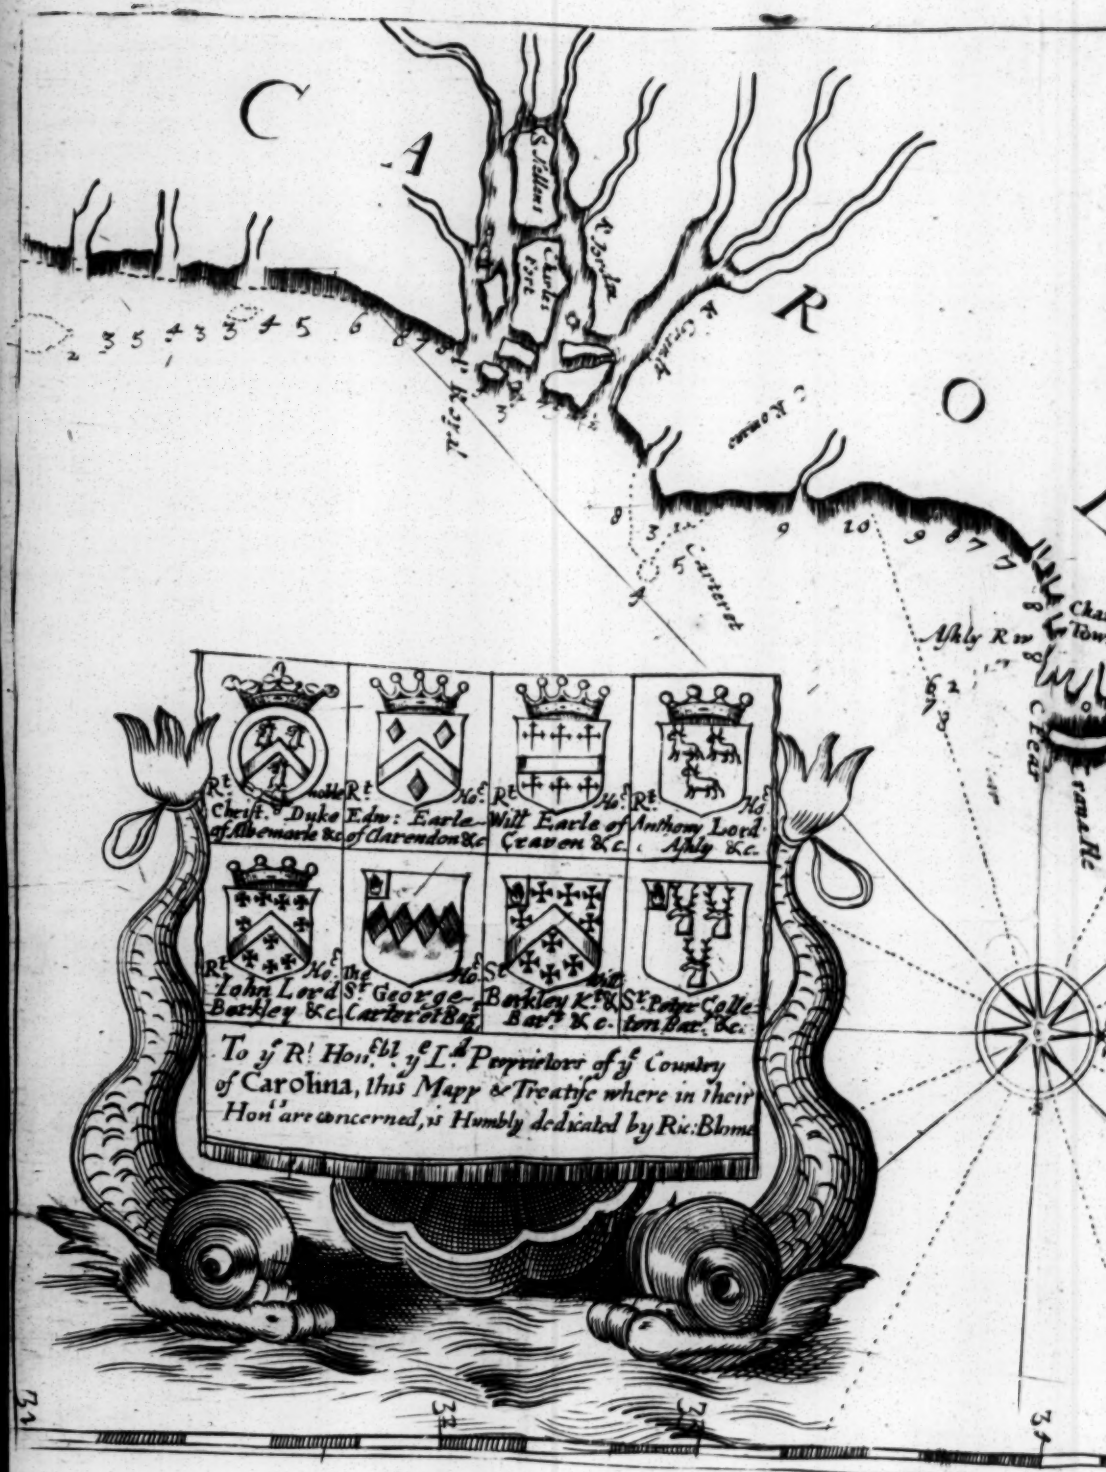 C
A
R
O
S. Hellens
Charles
Fort
R Jordan
R Grand
C Romano
Port Royal
2 3 5 4 3 3 4 5 6 8 7
3
8
3
9
10
9
8
7
7
5
Carteret
4
Ashly R
Cha
Tow
8
8
6 2
7 8
C Fear
31
Rt. noble
Christ. Duke
of Albemarle &c
Rt. Hoe.
Edw: Earle
of Clarendon &c
Rt. Hoe.
Will Earle of
Craven &c.
Rt. Ho
Anthony Lord
Ashly &c.
Rt. Hoe.
Iohn Lord
Berkley &c.
The Hoe.
Sr George
Carteret Bart.
Sr Will
Berkley Kt. &
Bart. &c.
Sr. Peter Colle-
ton Bar. &c.
To ye Rt Honrebl ye Ld. Proprietors of ye Country
of Carolina, this Mapp & Treatise where in their
Honrs are concerned, is Humbly dedicated by Ric: Blome
32
33
34